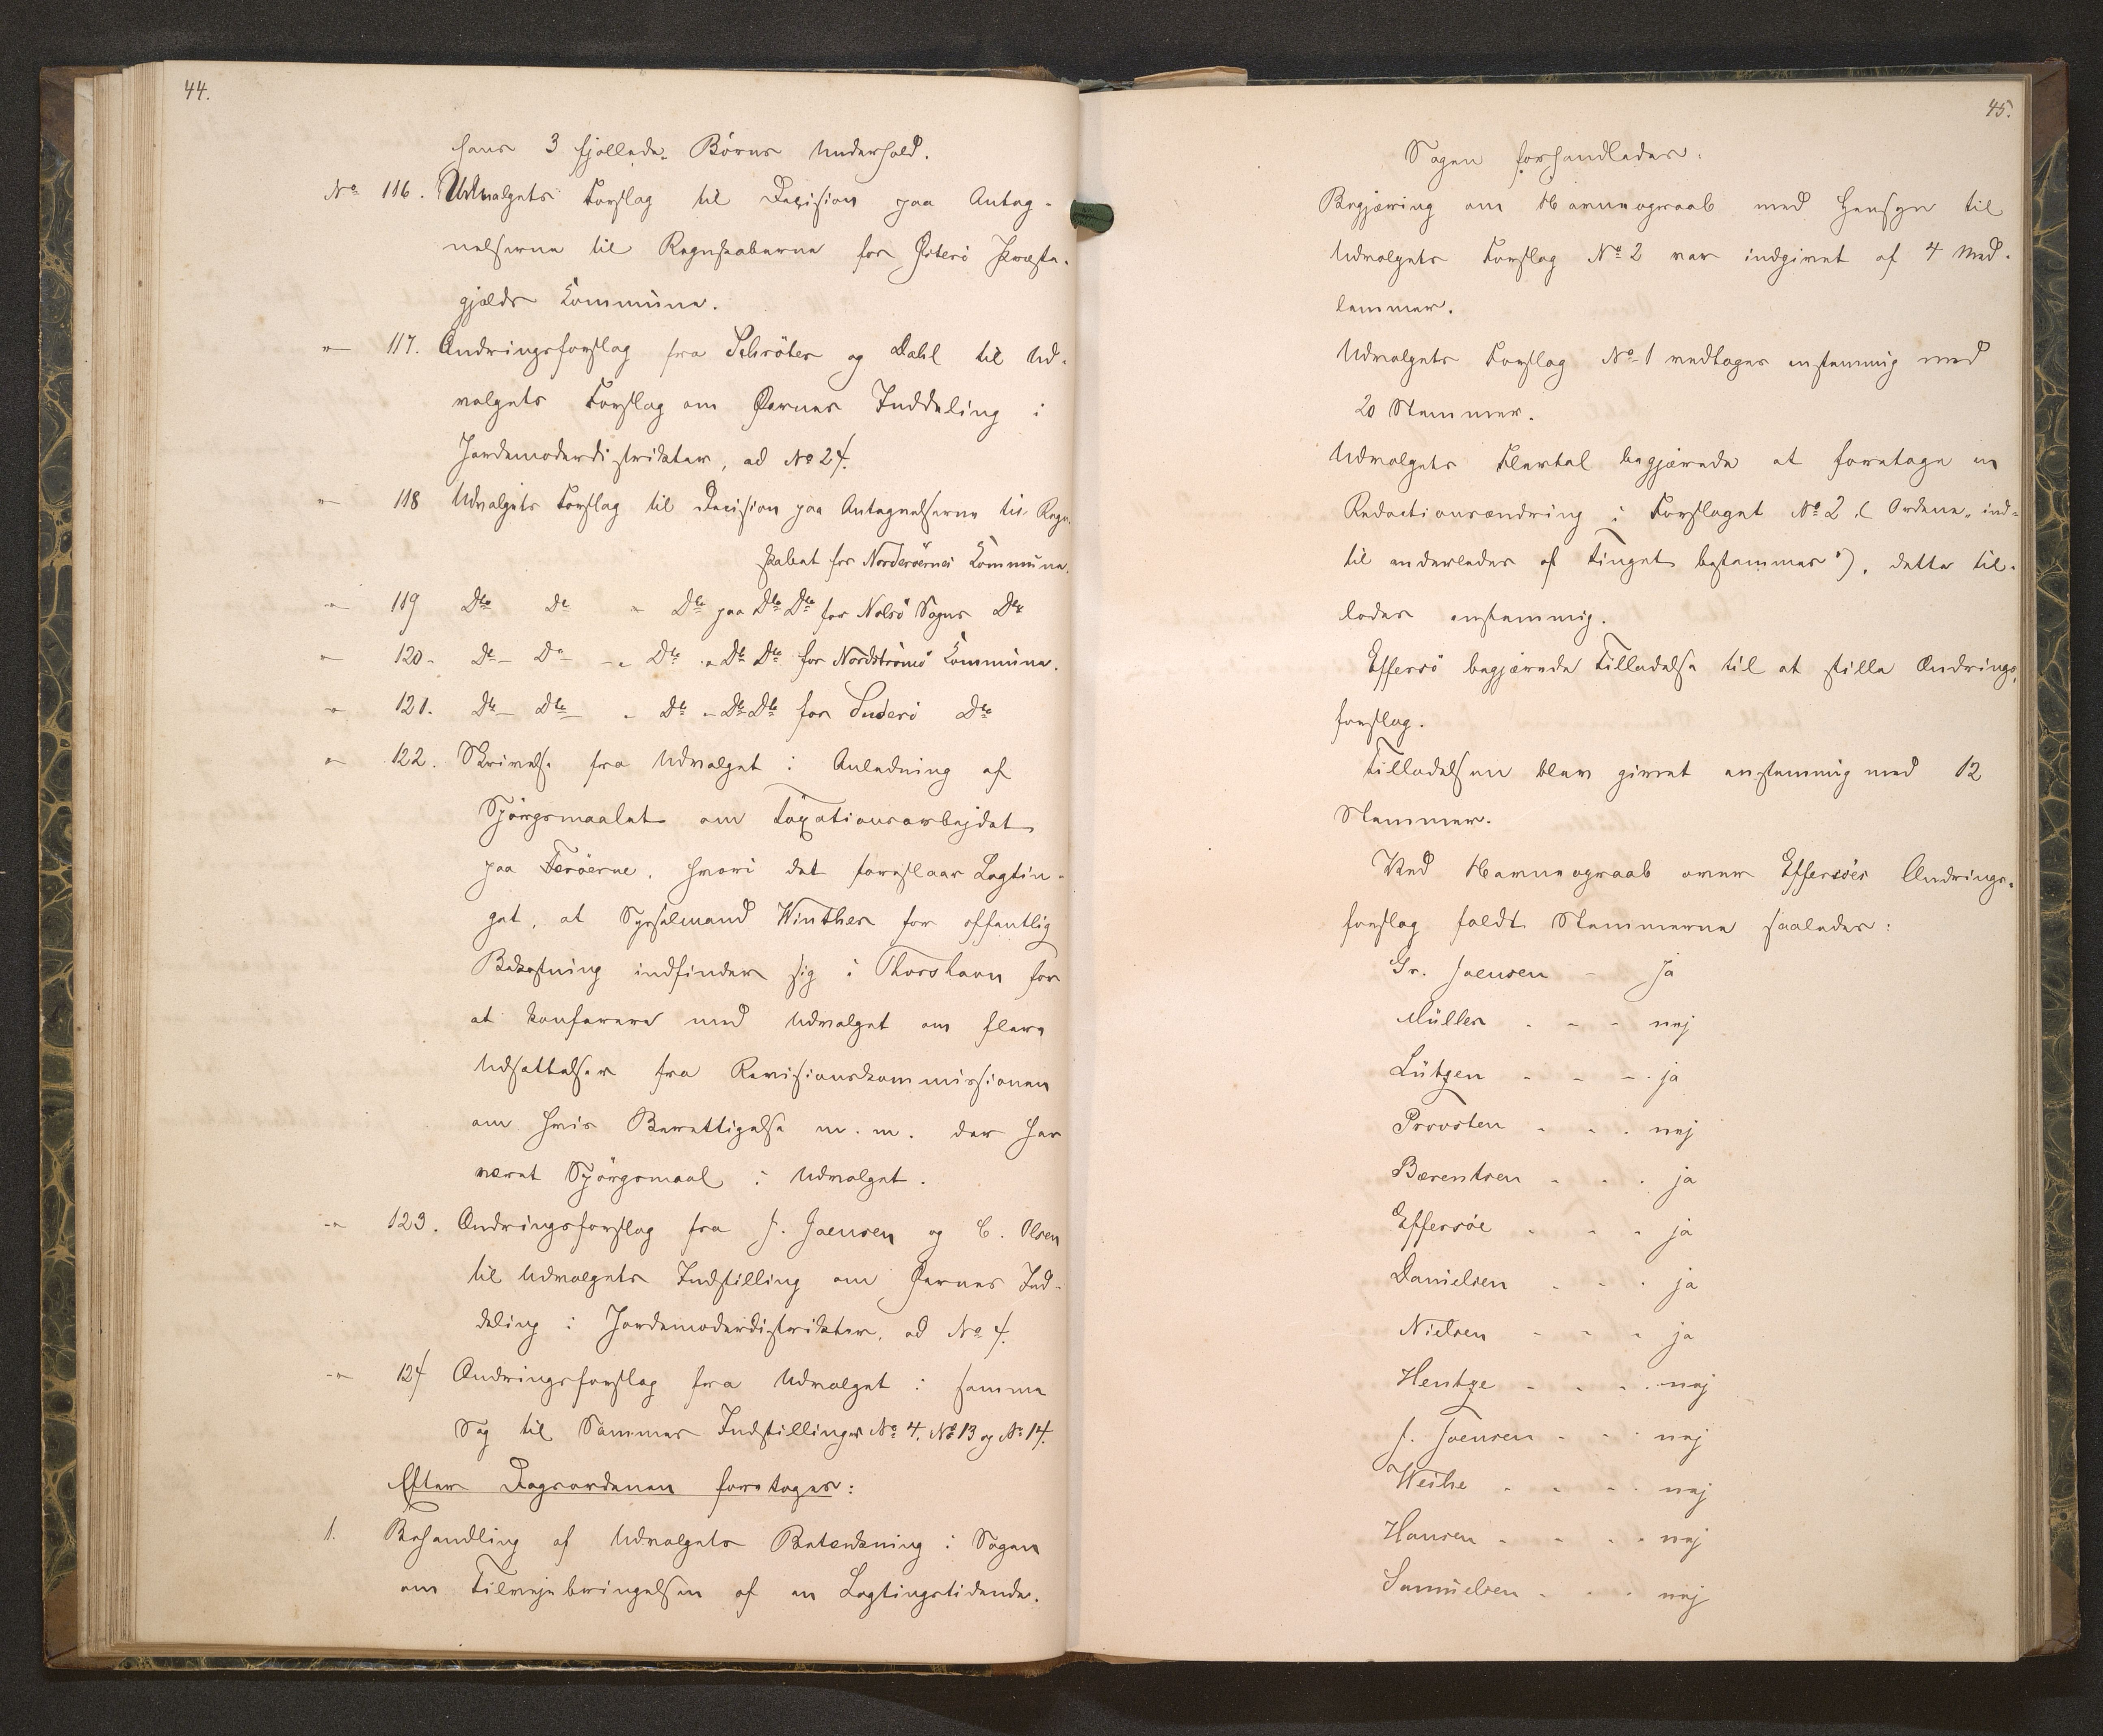 44.
hans 3 sjællede Børns Underhold.
No 116. Udvalgets Forslag til Decision paa Antag-
nelserne til Regnskaberne for Østerö Præste-
gjælds Kommune.
"— 117. Ændringsforslag fra Schröter og Dahl til Ud-
valgets Forslag om Øernes Inddeling i
Jordemoderdistrikter, ad No 24.
"— 118 Udvalgets Forslag til Decision paa Antagnelserne til Regn-
skabet for Norderöernes Kommune.
-"- 119 Dto Do " Dto paa Dto Dto for Nolsö Sogns Dto
"— 120- Dto- Do- -" Dto " Dto Dto for Nordströmö Kommune.
-"- 121. Dto- Dto- " Dto -" Dto Dto for Suderö Dto
"— 122. Skrivelse fra Udvalget i Anledning af
Spörgsmaalet om Taxationsarbejdet
paa Færöerne, hvori det foreslaar Lagtin-
get, at Sysselmand Winther for offentlig
Bekostning indfinder sig i Thorshavn for
at konferere med Udvalget om flere
Udsættelser fra Revisionskommissionen
om hvis Berettigelse m. m. der har
været Spörgsmaal i Udvalget.
-"- 123. Ændringsforslag fra J. Joensen og C. Olsen
til Udvalgets Indstilling om Øernes Ind-
deling i Jordemoderdistrikter, ad No 4.
-"- 124 Ændringsforslag fra Udvalget i samme
Sag til Sammes Indstillinger No 4, No 13 og No 14.
Efter Dagsordenen foretoges:
1. Behandling af Udvalgets Betænkning i Sagen
om Tilvejebringelsen af en Lagtingstidende.
45.
Sagen forhandledes:
Begjæring om Navneopraab med Hensyn til
Udvalgets Forslag No 2 var indgivet af 4 Med-
lemmer.
Udvalgets Forslag No 1 vedtoges enstemmig med
20 Stemmer.
Udvalgets Flertal begjærede at foretage en
Redactionsændring i Forslaget No 2 (Ordene „ind-
til anderledes af Tinget bestemmes"), dette til-
lodes enstemmig.
Effersö begjærede Tilladelse til at stille Ændrings-
forslag.
Tilladelsen blev givet enstemmig med 12
Stemmer.
Ved Navneopraab over Effersöes Ændrings-
forslag faldt Stemmerne saaledes:
Gr. Joensen - Ja
Müller - - - nej
Lützen - - - ja
Provsten - - - nej
Bærentsen - - - ja
Effersöe - - - ja
Danielsen - - - ja
Nielsen - - - ja
Hentze - - - nej
J. Joensen - - - nej
Weihe - - - nej
Hansen - - - nej
Samuelsen - - - nej